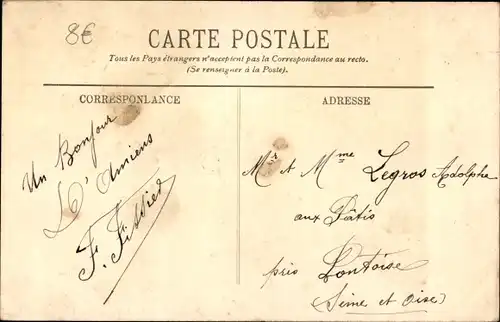 8€
CARTE POSTALE
Tous les Pays étrangers n'acceptent pas la Correspondance au recto.
(Se renseigner à la Poste).
CORRESPONLANCE
ADRESSE
Un Bonjour
D'Amiens
F.
Mr et Mme Legros Adolphe
aux Pâtis
près Pontoise
(Seine et Oise)